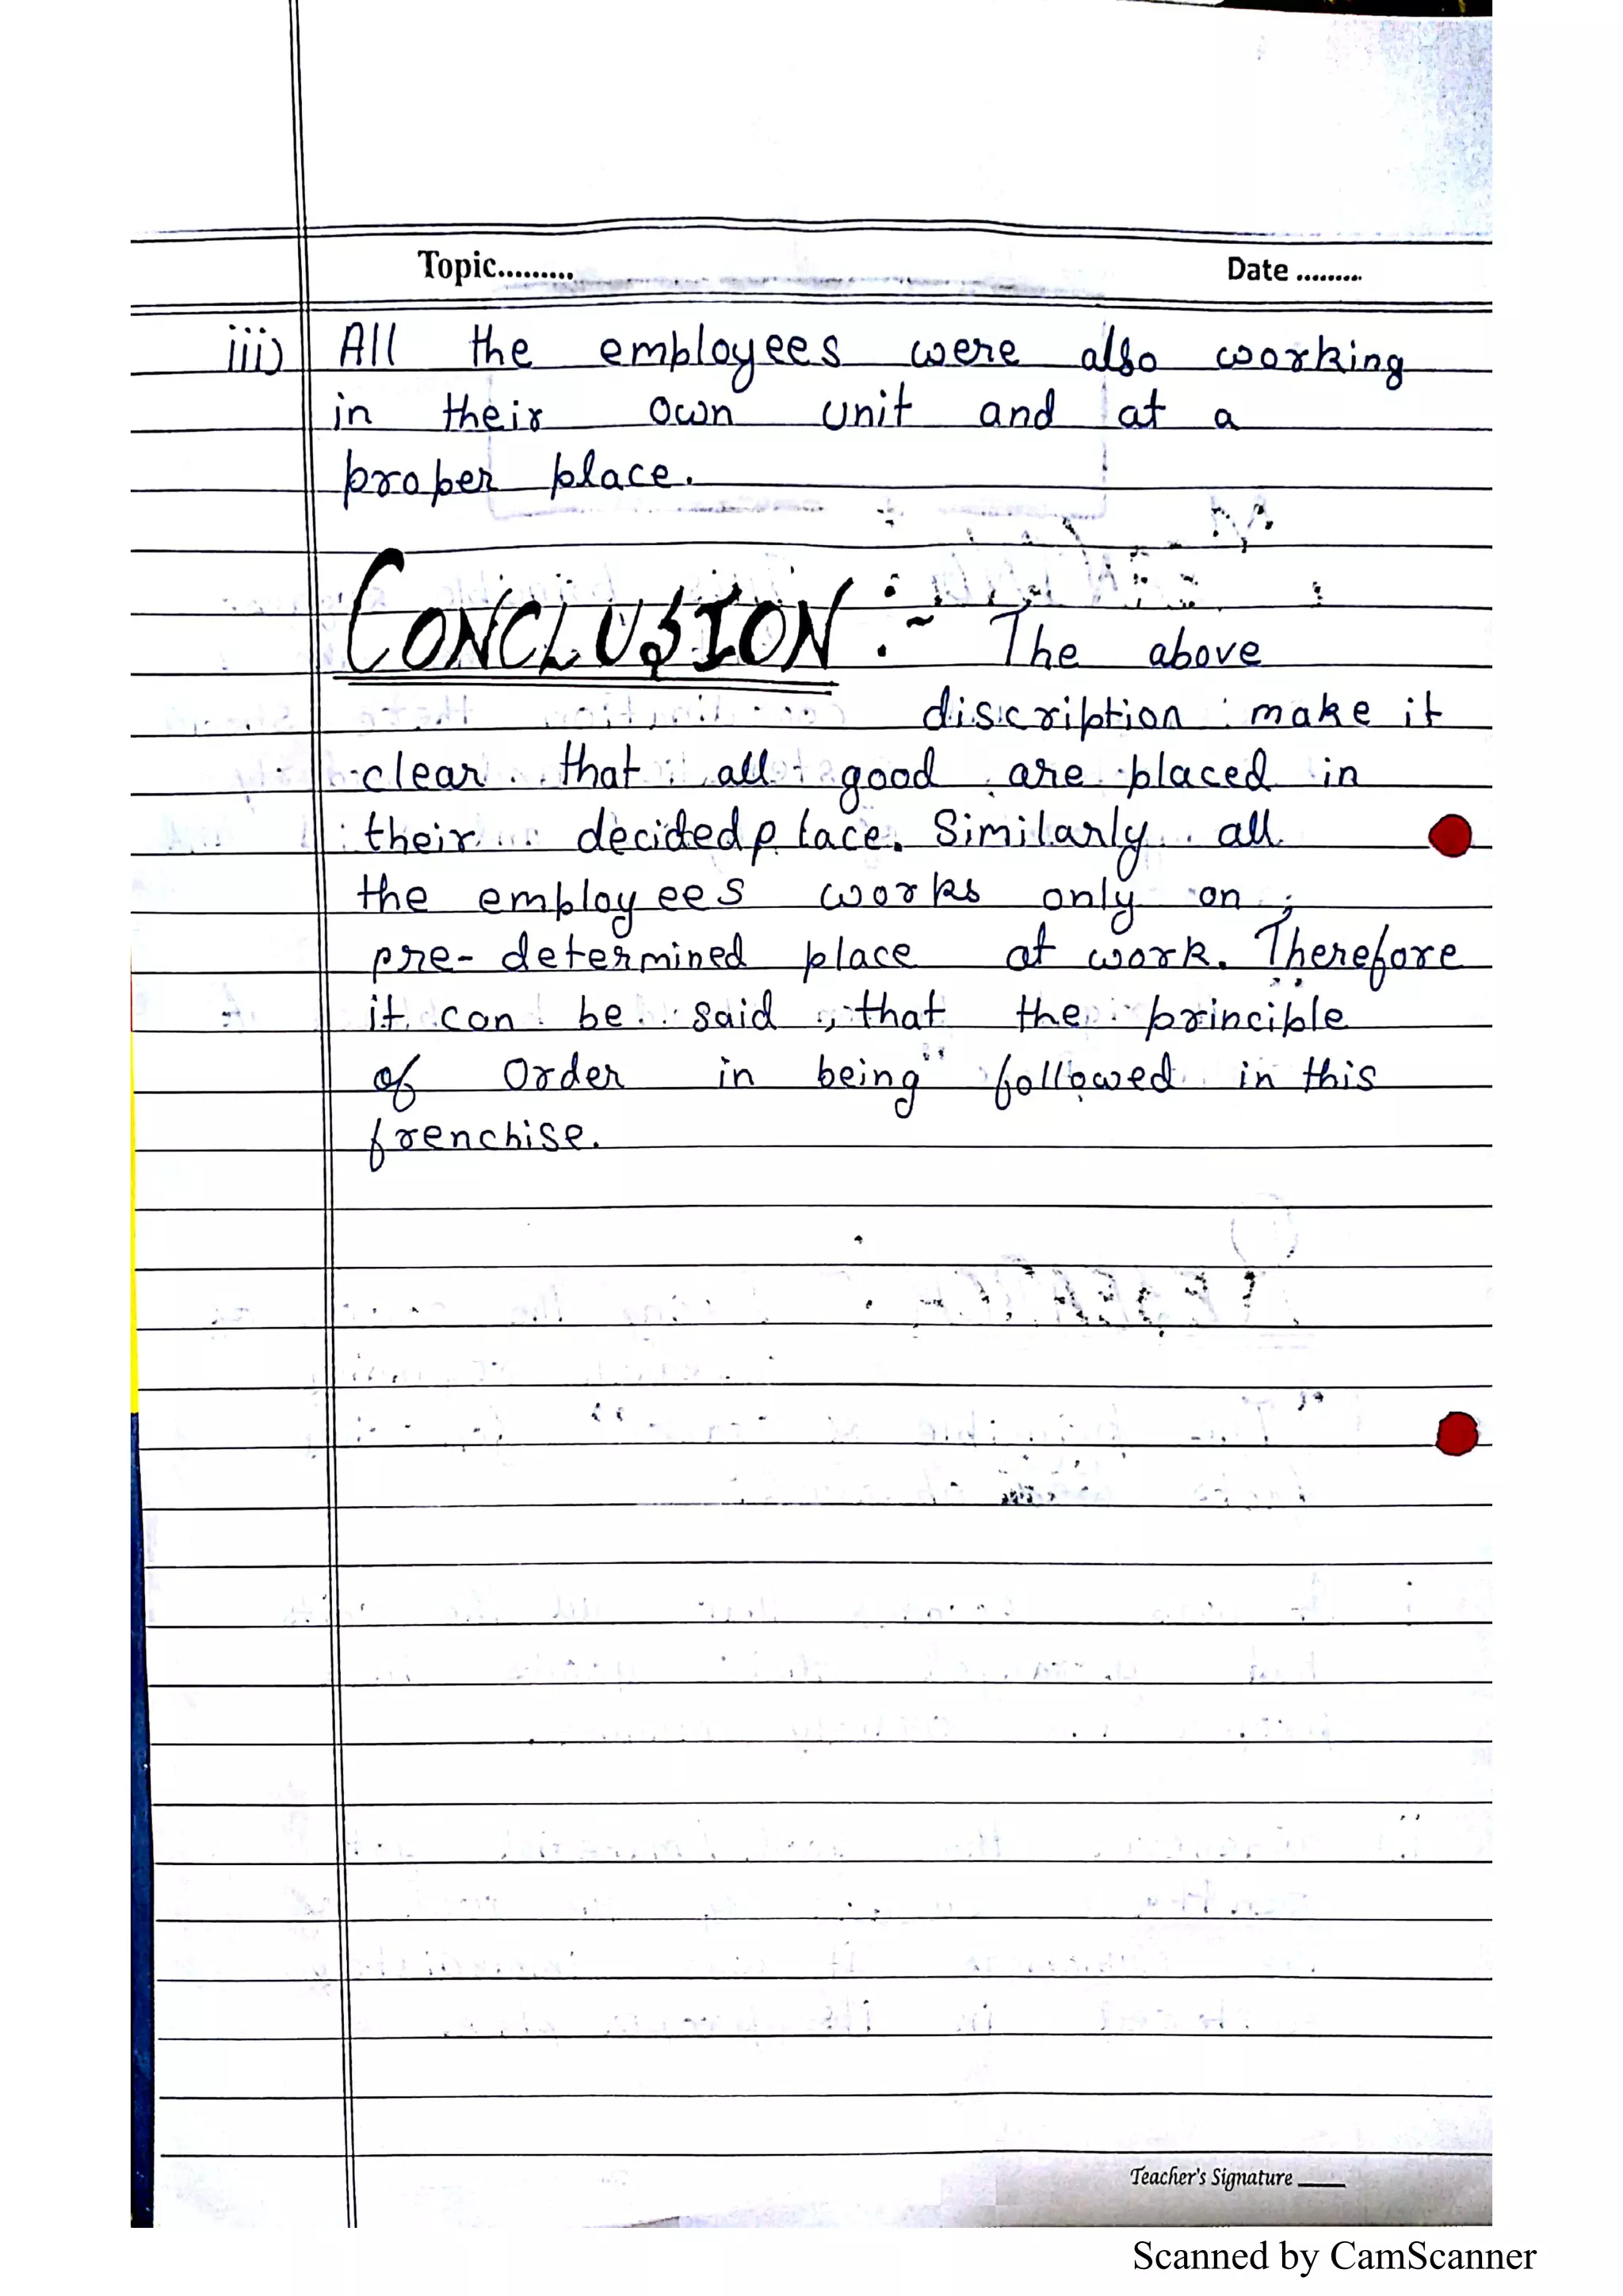 Topic.........
Date .........
iii) All the employees were also working
in their own unit and at a
proper place.
CONCLUSION :- The above
discription make it
clear that all good are placed in
their decided place. Similarly all
the employees works only on
pre-determined place at work. Therefore
it can be said, that the principle
of Order in being followed in this
frenchise.
Teacher's Signature ____
Scanned by CamScanner